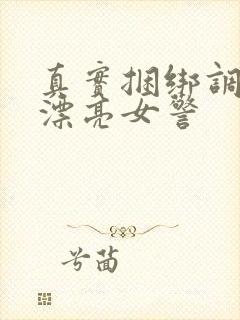 真實捆綁調
漂亮女警
兮茵